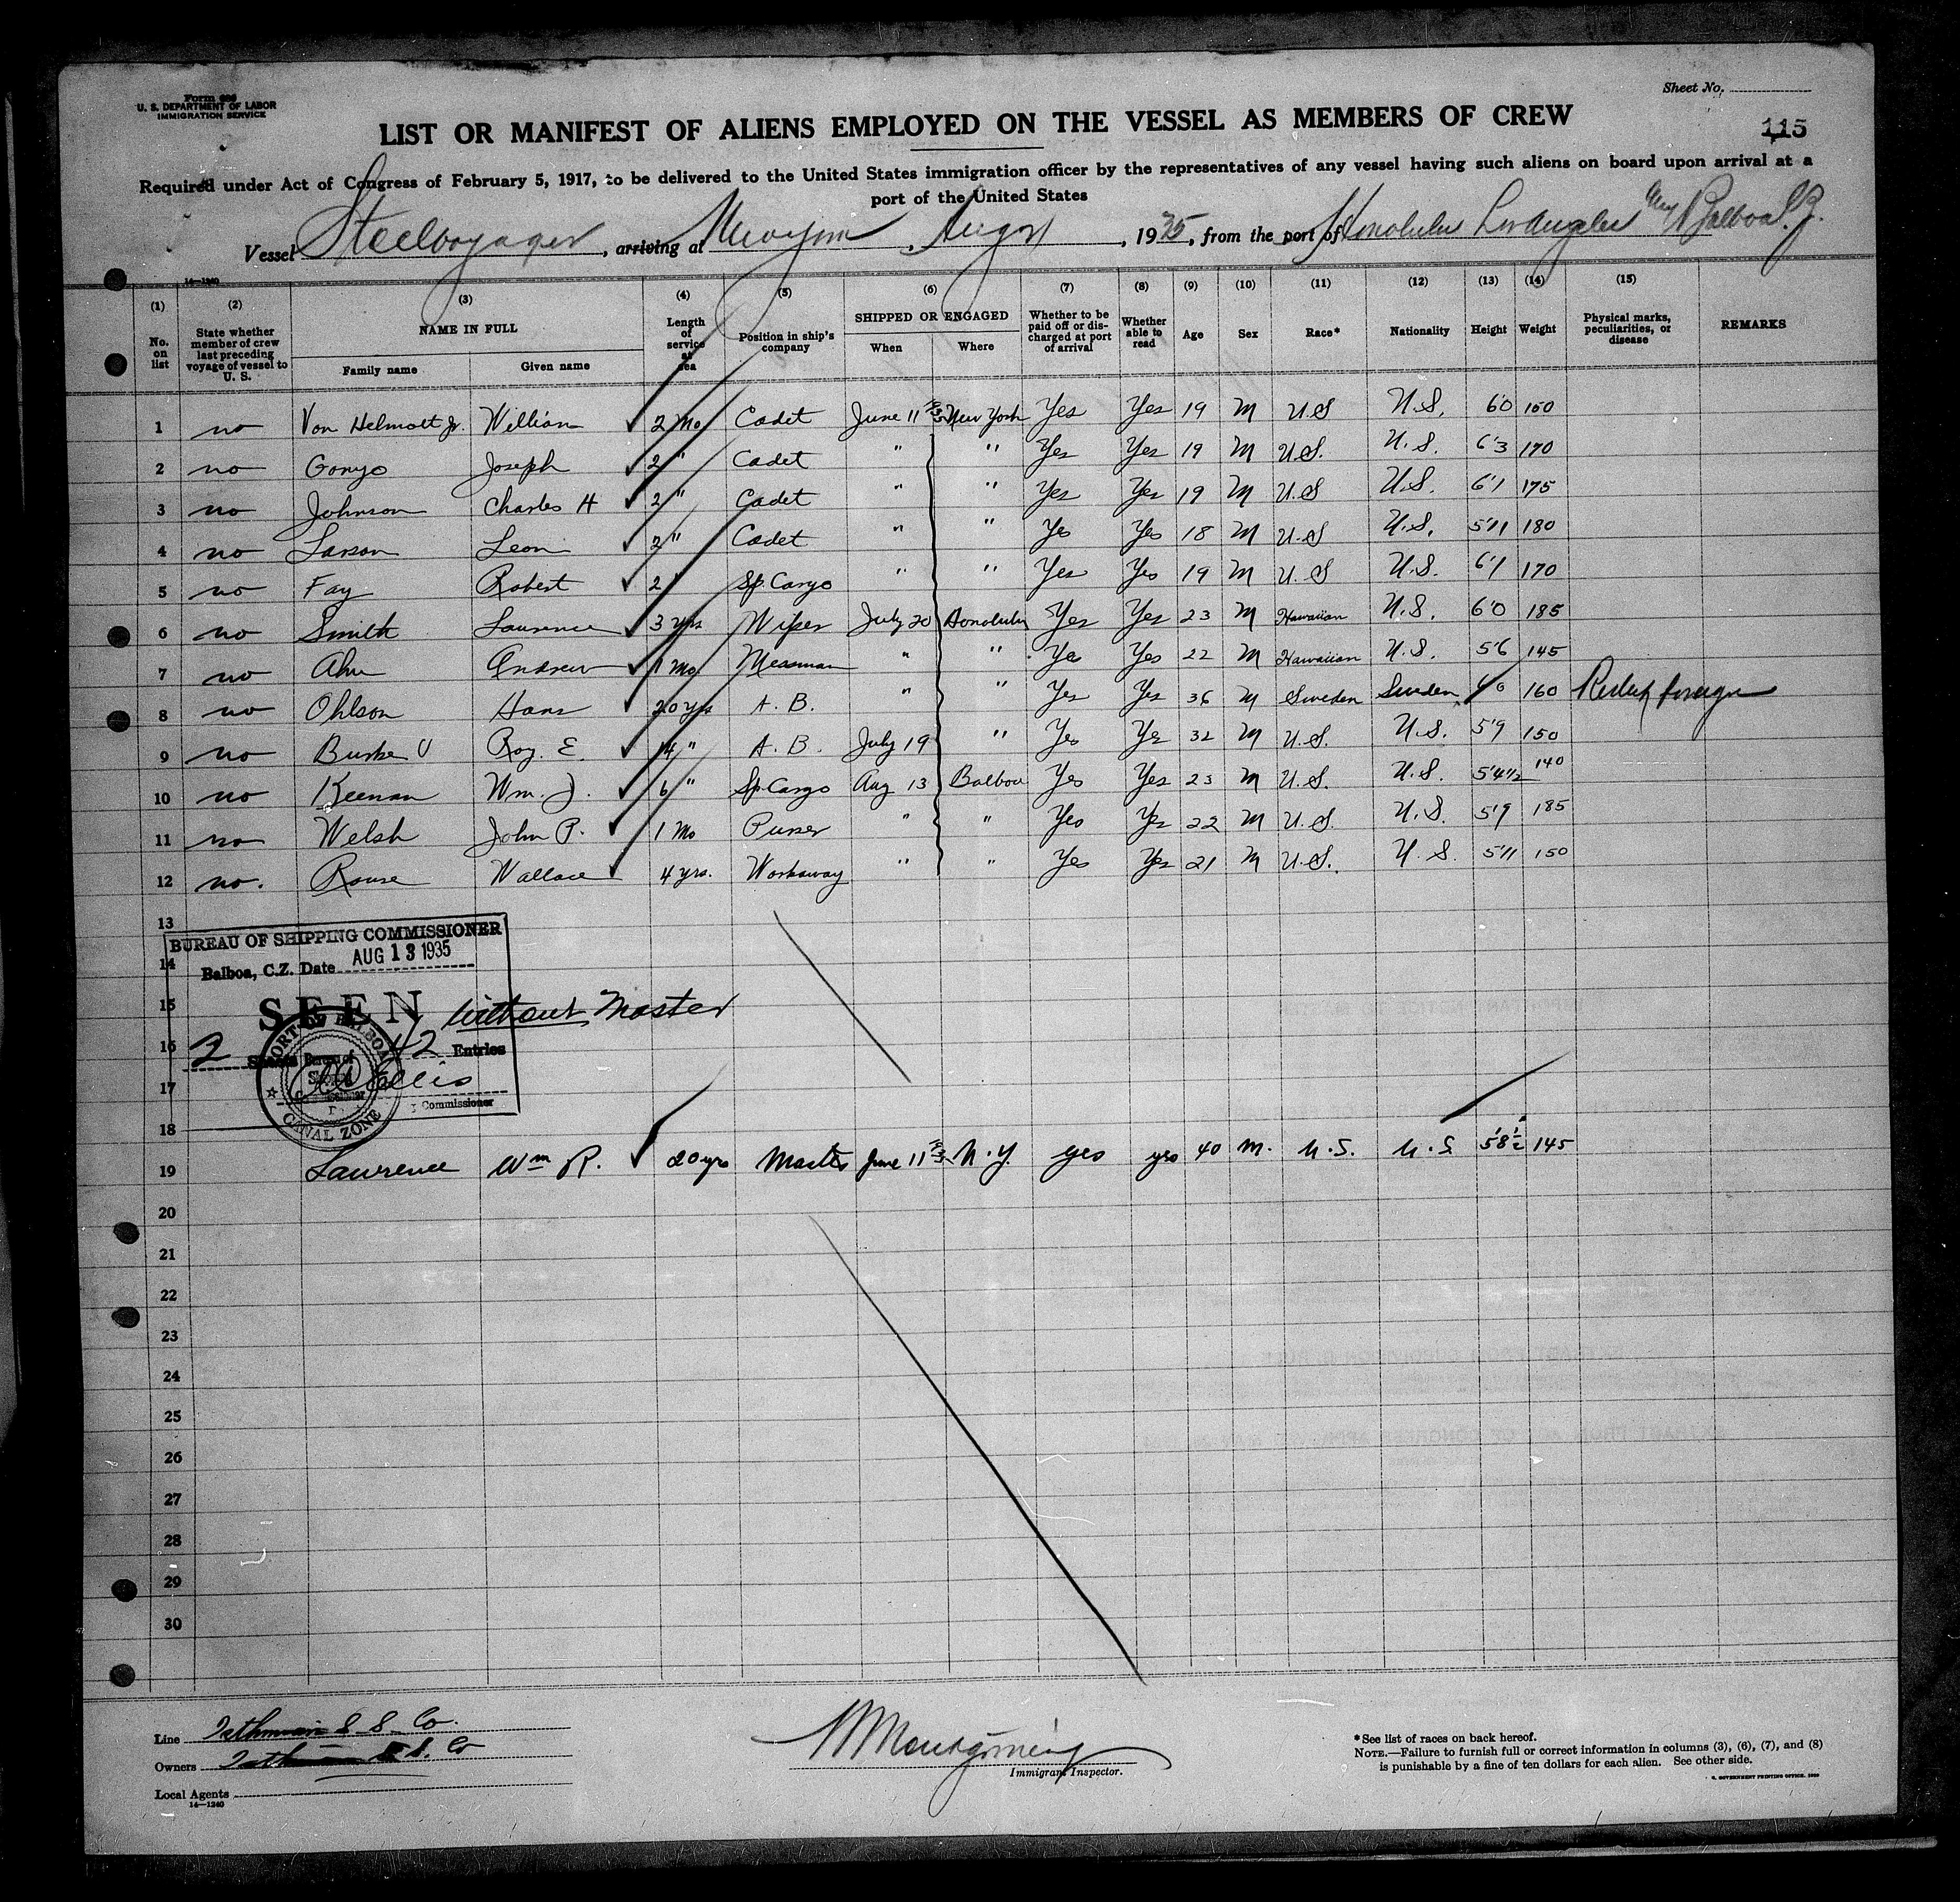 Form 680
U. S. DEPARTMENT OF LABOR
IMMIGRATION SERVICE
Sheet No.
LIST OR MANIFEST OF ALIENS EMPLOYED ON THE VESSEL AS MEMBERS OF CREW
115
Required under Act of Congress of February 5, 1917, to be delivered to the United States immigration officer by the representatives of any vessel having such aliens on board upon arrival at a
port of the United States
Vessel Steelvoyager, arriving at New York, Aug, 1935, from the port of Honolulu Los Angeles Balboa C.Z.
14—1240
(1) (2) (3) (4) (5) (6) (7) (8) (9) (10) (11) (12) (13) (14) (15)
No. on list State whether member of crew last preceding voyage of vessel to U. S. NAME IN FULL Length of service at sea Position in ship's company SHIPPED OR ENGAGED Whether to be paid off or discharged at port of arrival Whether able to read Age Sex Race* Nationality Height Weight Physical marks, peculiarities, or disease REMARKS
Family name Given name When Where
1 no Von Helmolt Jr. William 2 Mo Cadet June 11 1935 New York Yes Yes 19 M U.S U.S. 6'0 150
2 no Gonyo Joseph 2 " Cadet " " Yes Yes 19 M U.S. U.S. 6'3 170
3 no Johnson Charles H 2 " Cadet " " Yes Yes 19 M U.S U.S. 6'1 175
4 no Larson Leon 2 " Cadet " " Yes Yes 18 M U.S U.S. 5'11 180
5 no Fay Robert 2 " Sp. Cargo " " Yes Yes 19 M U.S U.S. 6'1 170
6 no Smith Laurence 3 yrs Wiper July 20 Honolulu Yes Yes 23 M Hawaiian U.S. 6'0 185
7 no Ahu Andrew 1 Mo Messman " " Yes Yes 22 M Hawaiian U.S. 5'6 145
8 no Ohlson Hans 20 yrs A. B. " " Yes Yes 36 M Sweden Sweden 6'0 160 foreign
9 no Burke Roy. E. 14 " A. B. July 19 " Yes Yes 32 M U.S. U.S. 5'9 150
10 no Keenan Wm. J. 6 " Sp Cargo Aug 13 Balboa Yes Yes 23 M U.S. U.S. 5'4½ 140
11 no Welsh John P. 1 Mo Purser " " Yes Yes 22 M U.S. U.S. 5'9 185
12 no. Rouse Wallace 4 yrs. Workaway " " Yes Yes 21 M U.S. U.S. 5'11 150
13
BUREAU OF SHIPPING COMMISSIONER
14
Balboa, C.Z. Date AUG 13 1935
15
SEEN without Master
16
2 Sheets 42 Entries
17
Ellis
Commissioner
PORT OF BALBOA
CANAL ZONE
18
19 Lawrence Wm R. 20 yrs Master June 11 1935 N.Y. yes yes 40 m. U.S. U.S 5'8½ 145
20
21
22
23
24
25
26
27
28
29
30
Line Isthmian S S Co.
Owners Isthmian S.S. Co
Local Agents
14—1240
Montgomery
Immigrant Inspector.
* See list of races on back hereof.
NOTE.—Failure to furnish full or correct information in columns (3), (6), (7), and (8)
is punishable by a fine of ten dollars for each alien. See other side.
U. S. GOVERNMENT PRINTING OFFICE